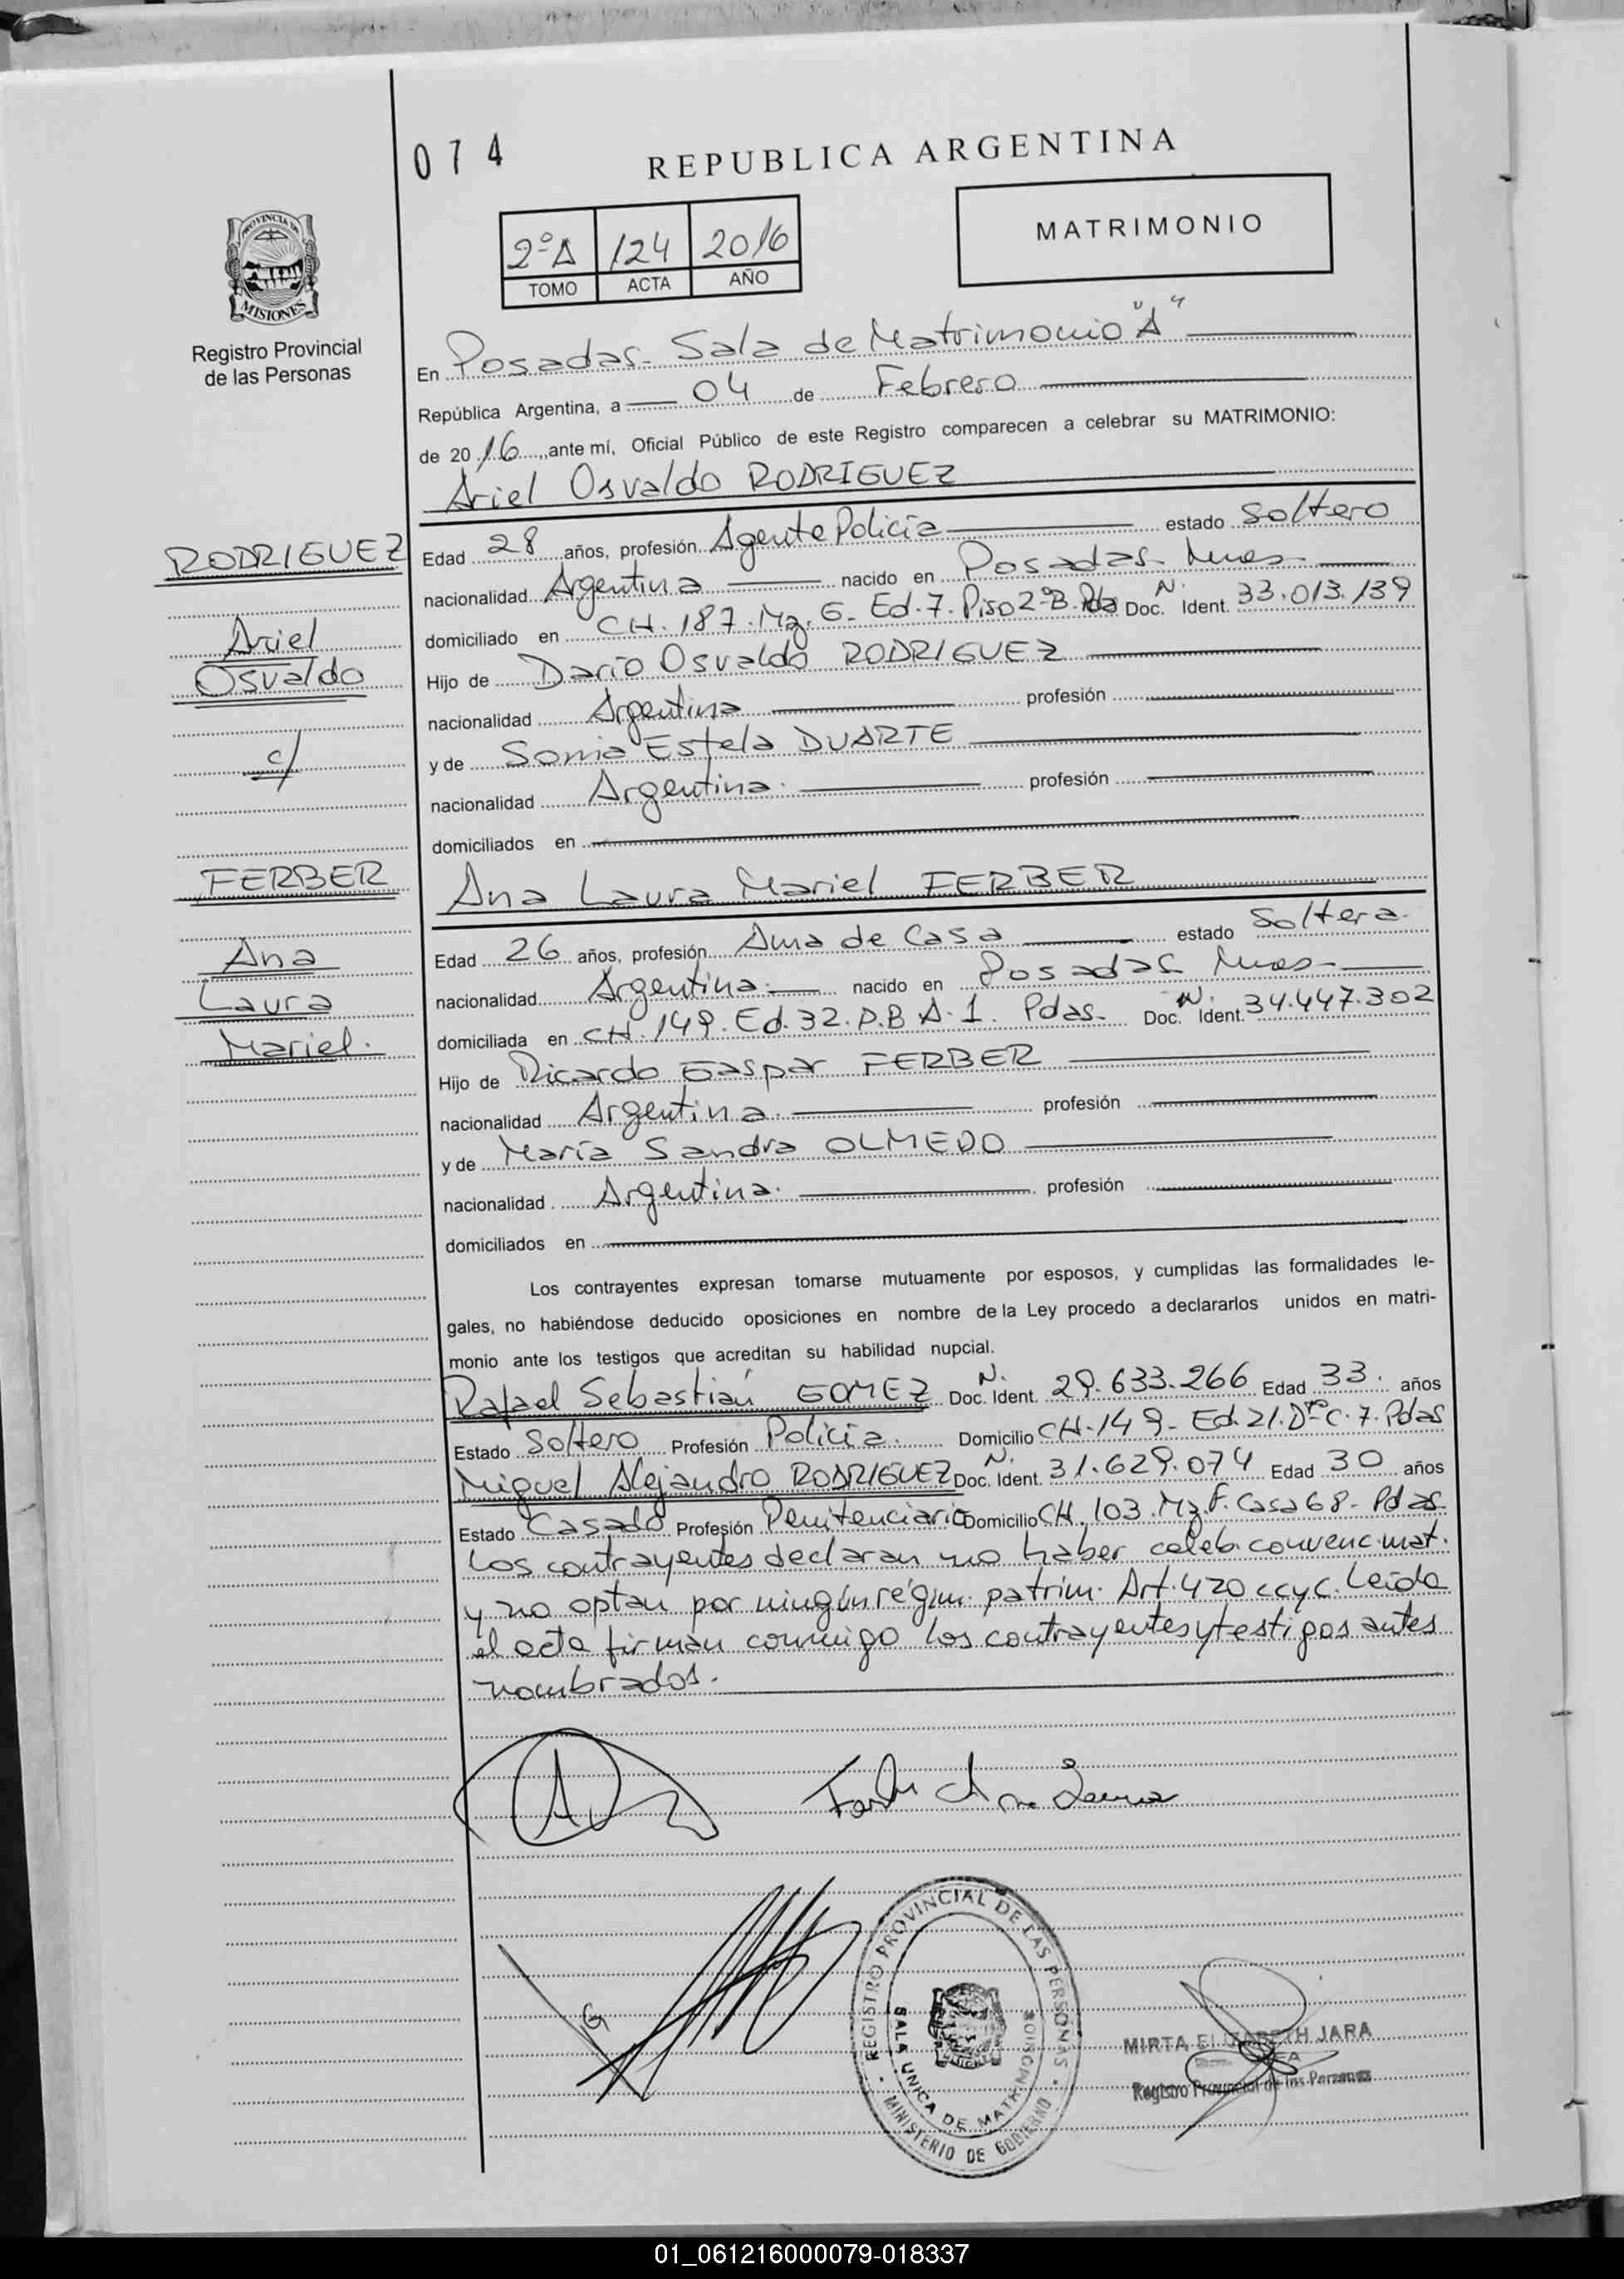 074
REPUBLICA ARGENTINA
PROVINCIA DE
MISIONES
Registro Provincial
de las Personas
2ºA 124 2016
TOMO ACTA AÑO
MATRIMONIO
En Posadas- Sala de Matrimonio "A"
República Argentina, a 04 de Febrero
de 2016, ante mí, Oficial Público de este Registro comparecen a celebrar su MATRIMONIO:
Ariel Osvaldo RODRIGUEZ
RODRIGUEZ
Ariel
Osvaldo
c/
FERBER
Ana
Laura
Mariel.
Edad 28 años, profesión Agente Policía estado Soltero
nacionalidad Argentina nacido en Posadas- Mnes-
domiciliado en CH. 187. Mz. G- Ed. 7. Piso 2ºB. Doc. N. Ident. 33.013.139
Hijo de Darío Osvaldo RODRIGUEZ
nacionalidad Argentina profesión
y de Sonia Estela DUARTE
nacionalidad Argentina. profesión
domiciliados en
Ana Laura Mariel FERBER
Edad 26 años, profesión Ama de Casa estado Soltera.
nacionalidad Argentina. nacido en Posadas Mnes-
domiciliada en CH. 149. Ed. 32. P.B A. 1. Pdas. Doc. N. Ident. 34.447.302
Hijo de Ricardo Gaspar FERBER
nacionalidad Argentina. profesión
y de María Sandra OLMEDO
nacionalidad Argentina. profesión
domiciliados en
Los contrayentes expresan tomarse mutuamente por esposos, y cumplidas las formalidades le-
gales, no habiéndose deducido oposiciones en nombre de la Ley procedo a declararlos unidos en matri-
monio ante los testigos que acreditan su habilidad nupcial.
Rafael Sebastián GOMEZ Doc. N. Ident. 29.633.266 Edad 33. años
Estado Soltero Profesión Policía. Domicilio CH. 149- Ed. 21. Dto C. 7. Pdas
Miguel Alejandro RODRIGUEZ Doc. N. Ident. 31.629.074 Edad 30 años
Estado Casado Profesión Penitenciario Domicilio CH. 103. Mz. F. Casa 68- Pdas
Los contrayentes declaran no haber celeb. convenc. mat.
y no optan por ningún régim. patrim. Art. 420 ccyc. Leída
el acta firman conmigo los contrayentes y testigos antes
nombrados.
REGISTRO PROVINCIAL DE LAS PERSONAS
SALA UNICA DE MATRIMONIOS
MINISTERIO DE GOBIERNO
MIRTA ELIZABETH JARA
Registro Provincial de las Personas
01_061216000079-018337